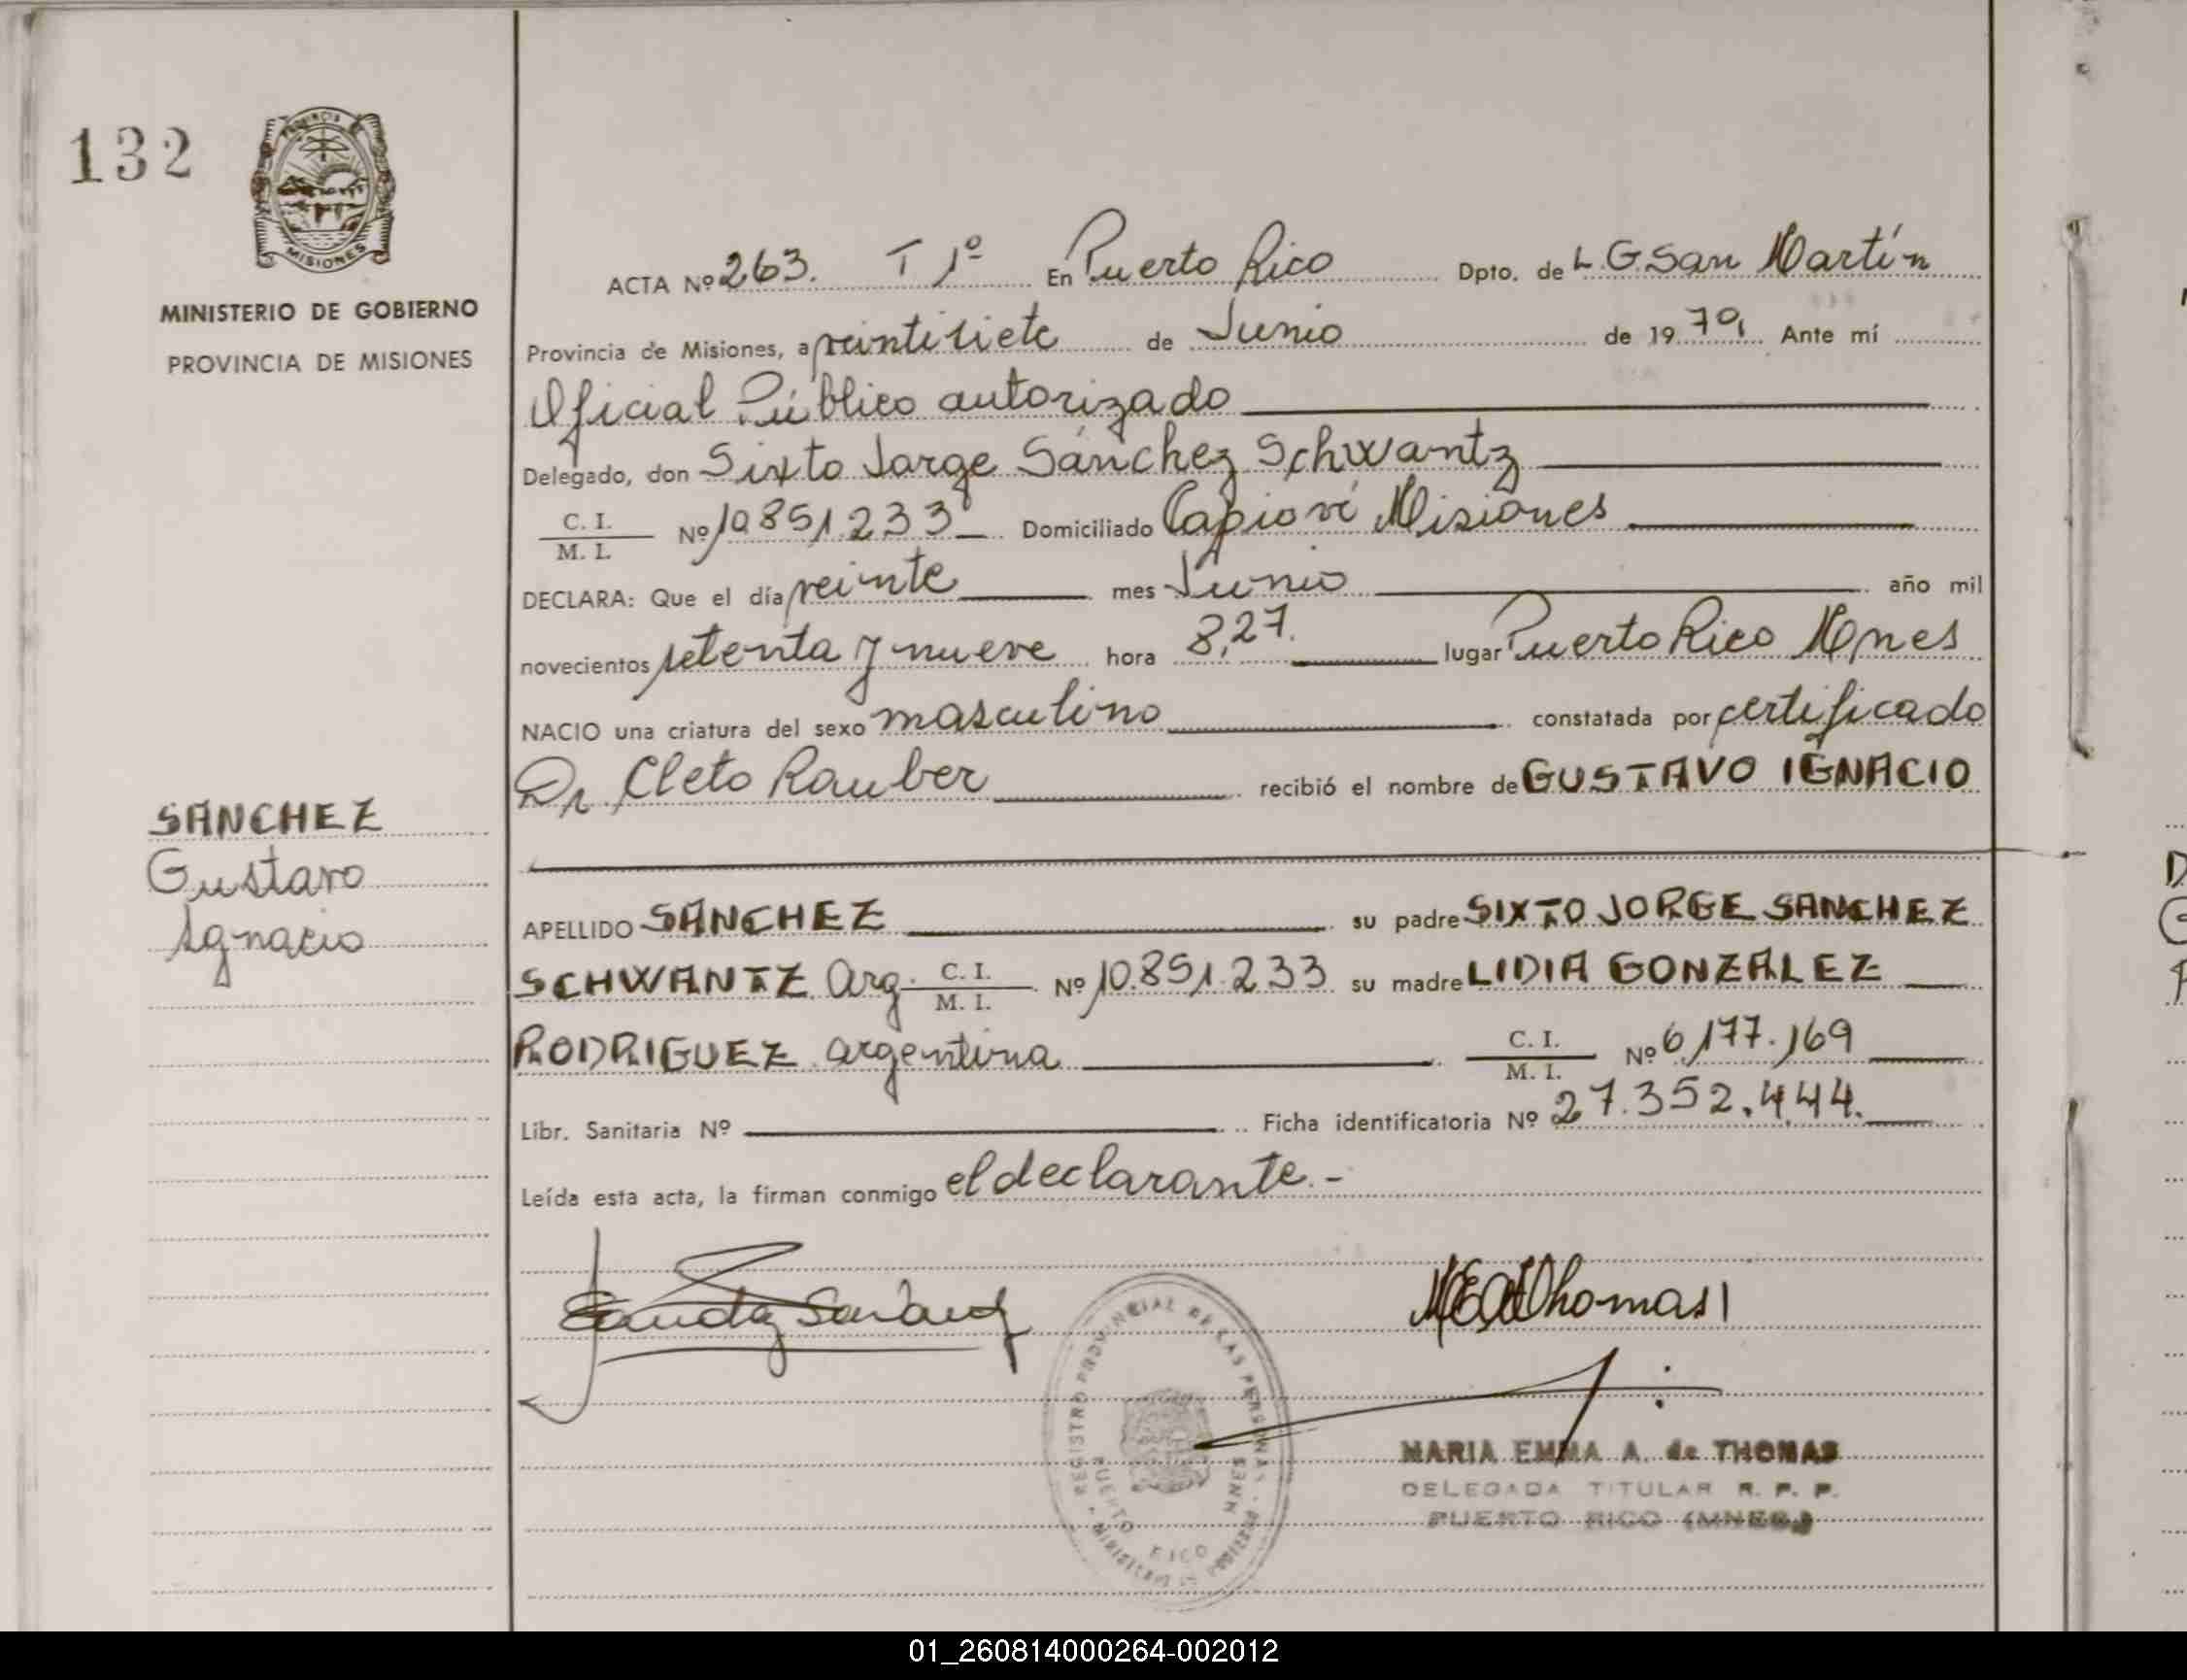 132
PROVINCIA DE
MISIONES
MINISTERIO DE GOBIERNO
PROVINCIA DE MISIONES
SANCHEZ
Gustavo
Ignacio
ACTA Nº 263. T 1º En Puerto Rico Dpto. de L.G.San Martín
Provincia de Misiones, a veintisiete de Junio de 1979 Ante mí
Oficial Público autorizado
Delegado, don Sixto Jorge Sánchez Schwantz
C. I.
M. I. Nº 10.851.233 Domiciliado Capioví Misiones
DECLARA: Que el día veinte mes Junio año mil
novecientos setenta y nueve hora 8,27. lugar Puerto Rico Mnes
NACIO una criatura del sexo masculino constatada por certificado
Dr. Cleto Rauber recibió el nombre de GUSTAVO IGNACIO
APELLIDO SANCHEZ su padre SIXTO JORGE SANCHEZ
SCHWANTZ Arg. C. I. M. I. Nº 10.851.233 su madre LIDIA GONZALEZ
RODRIGUEZ argentina C. I. M. I. Nº 6.177.169
Libr. Sanitaria Nº Ficha identificatoria Nº 27.352.444.
Leída esta acta, la firman conmigo el declarante.-
MEAdThomas
REGISTRO PROVINCIAL DE LAS PERSONAS
PUERTO RICO MNES
MARIA EMMA A. de THOMAS
DELEGADA TITULAR R. P. P.
PUERTO RICO (MNES.)
01_260814000264-002012